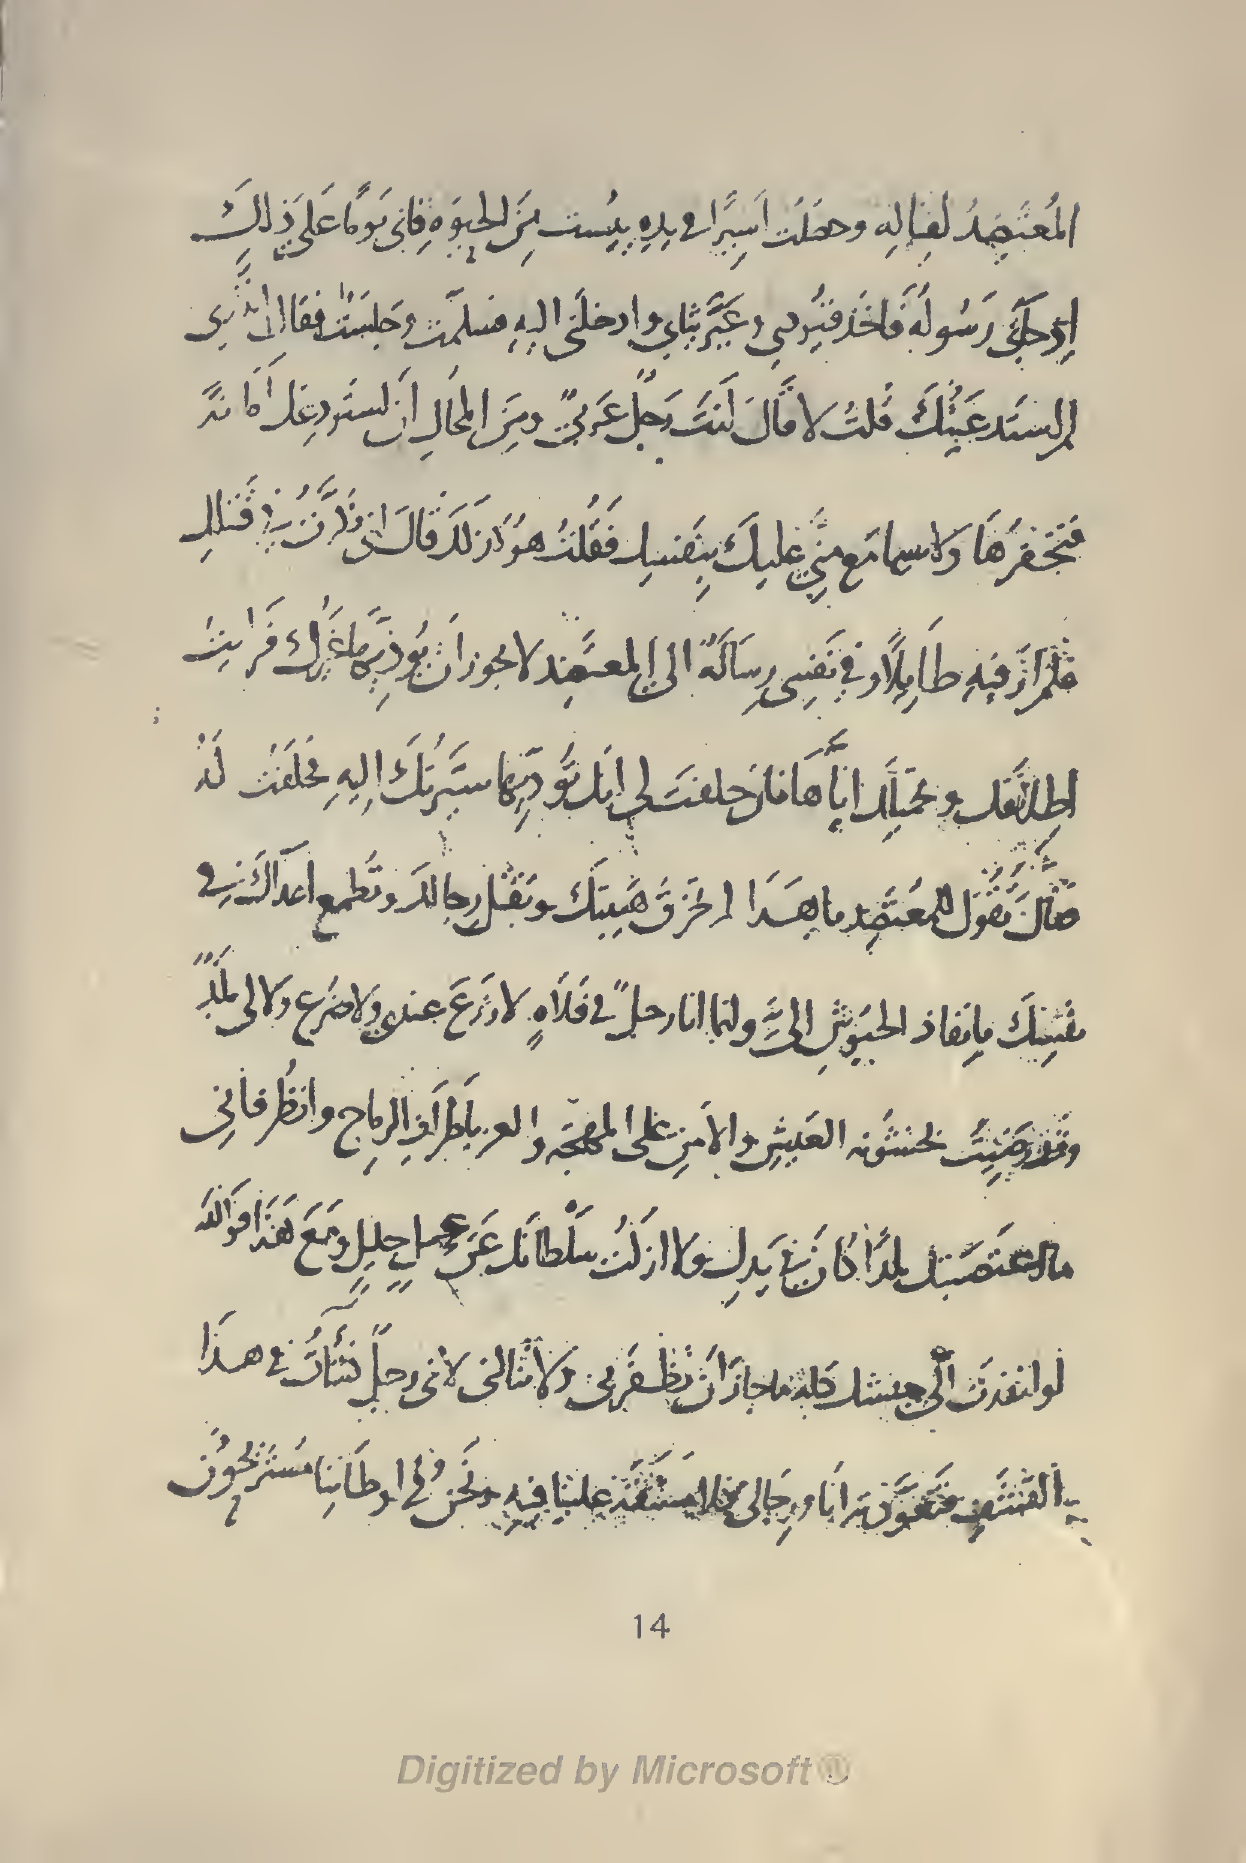 المُعتَضِدُ لقتاله وحصَلت اسِيرًا في يده يئست مِنَ الحيوةِ فاني يَومًا عَلى ذلِكَ
اذ جَآني رَسُولُهُ فاخَذ قيُودي وغَيَّر ثيابي وادخلني اليهِ فسلمّت وجلَستُ فقال
لم استَدعَيتُكَ قُلتُ لا قَالَ انتَ رَجلٌ عَربيٌ ومِنَ المحَالِ ان استَودِعكَ امَانَةً
فتخفرهَا ولا سيما مَع مَنّي عليكَ بنَفسك فقُلتُ هوَ كذلكَ قَالَ اني فكّرتُ في قتالك
فلم ارَ فيهِ طايلًا وفي نَفسِي رِسَالَةٌ الى المعتضِد لا يجوز ان يُوَديَها غيرُك فرَايتُ
اطلاقك وتحميلك اياهَا فان حلفتَ لي انك تؤديها سيّرتُكَ اليهِ فحلفتُ لَهُ
فقالَ تقول للمُعتضِد ما هَذا لم تخرق هَيبتَك وتقتل رجالك وتُطمع اعدَاكَ في
نفسِكَ بانفاذ الجيُوشِ اليَّ وانما انا رجلٌ في فَلَاهٍ لا زَرعَ عندي ولا ضَرع ولا لي بلَدٌ
وقد رضيتُ بخشونه العَيشِ والأمنِ على المهجَه والعز باطرَافِ الرماح وانظُر فاني
ما اغتصبتك بلدًا كانَ في يَدِك ولا ازلتُ سلطانك عَن عملٍ جليلٍ ومَعَ هَذا فوَالله
لو انفذتَ اليّ جيشك كله ما جازَ ان تظفَر بي ولا تنالني لاني رجلٌ نشأتُ في هَذا
القشَف فتعوّدته انَا ورجالي فلا مشقَّة علينا فيهِ ونَحنُ في اوطاننا مُستَريحُون
14
Digitized by Microsoft®